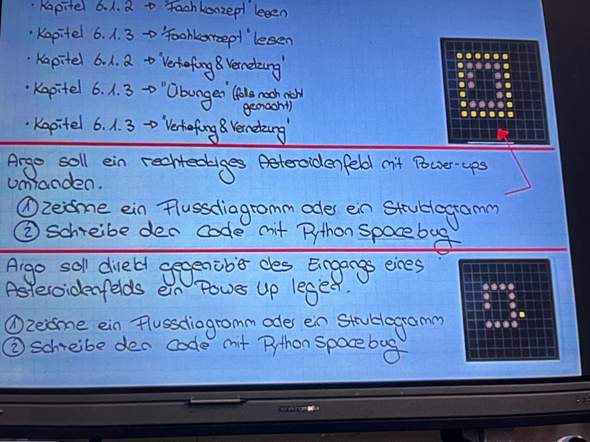 · Kapitel 6.1.2 → "Fachkonzept" lesen
· Kapitel 6.1.3 → "Fachkonzept" lesen
· Kapitel 6.1.2 → "Vertiefung & Vernetzung"
· Kapitel 6.1.3 → "Übungen" (falls noch nicht gemacht)
· Kapitel 6.1.3 → "Vertiefung & Vernetzung"
Argo soll ein rechteckiges Asteroidenfeld mit Power-ups
umranden.
① Zeichne ein Flussdiagramm oder ein Struktogramm
② Schreibe den Code mit Python Spacebug
Argo soll direkt gegenüber des Eingangs eines
Asteroidenfelds ein Power Up legen.
① Zeichne ein Flussdiagramm oder ein Struktogramm
② Schreibe den Code mit Python Spacebug